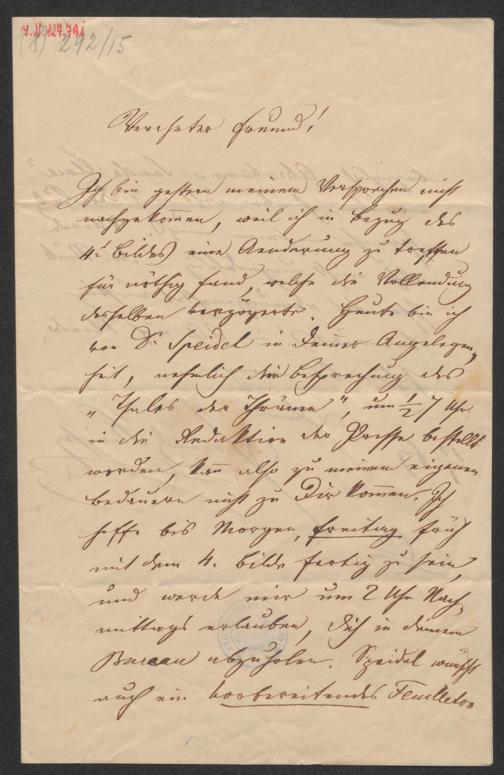 I.N. 127.791
(8) 292/15
Verehrter Freund!
Ich bin gestern meinem Versprechen nicht
nachgekommen, weil ich in Bezug des
4t Bildes eine Aenderung zu treffen
für nöthig fand, welche die Vollendung
desselben verzögerte. Heute bin ich
von Dr Speidel in Deiner Angelegen¬
heit, nehmlich die Besprechung des
"Thales der Thränen", um ½ 7 Uhr
in die Redaktion der Presse bestellt
worden, kann also zu meinem eigenen
Bedauern nicht zu Dir kommen. Ich
hoffe bis Morgen, Freitag früh
mit dem 4. Bilde fertig zu sein,
und werde mir um 2 Uhr Nach¬
mittags erlauben, Dich in Deinem
Bureau abzuholen. Speidel wünscht
auch ein vorbereitendes Feuilleton